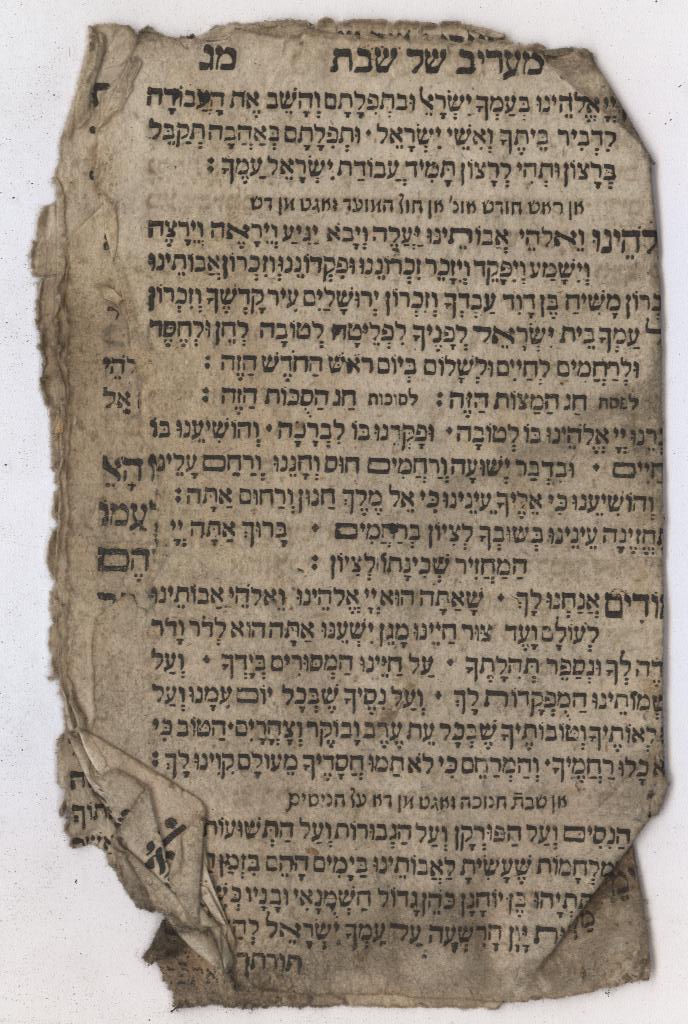 מעריב של שבת מג
יְיָ אֱלֹהֵינוּ בְּעַמְּךָ יִשְׂרָאֵל וּבִתְפִלָּתָם וְהָשֵׁב אֶת הָעֲבוֹדָה
לִדְבִיר בֵּיתֶךָ וְאִשֵּׁי יִשְׂרָאֵל · וּתְפִלָּתָם בְּאַהֲבָה תְקַבֵּל
בְּרָצוֹן וּתְהִי לְרָצוֹן תָּמִיד עֲבוֹדַת יִשְׂרָאֵל עַמֶּךָ :
אן ראש חודש אונ' אן חול המועד זאגט מן דש
אֱלֹהֵינוּ וֵאלֹהֵי אֲבוֹתֵינוּ יַעֲלֶה וְיָבֹא יַגִּיעַ וְיֵרָאֶה וְיֵרָצֶה
וְיִשָּׁמַע וְיִפָּקֵד וְיִזָּכֵר זִכְרוֹנֵנוּ וּפִקְדוֹנֵנוּ וְזִכְרוֹן אֲבוֹתֵינוּ
מָשִׁיחַ בֶּן דָּוִד עַבְדֶּךָ וְזִכְרוֹן יְרוּשָׁלַיִם עִיר קָדְשֶׁךָ וְזִכְרוֹן
עַמְּךָ בֵּית יִשְׂרָאֵל לְפָנֶיךָ לִפְלֵיטָה לְטוֹבָה לְחֵן וּלְחֶסֶד
וּלְרַחֲמִים לְחַיִּים וּלְשָׁלוֹם בְּיוֹם רֹאשׁ הַחֹדֶשׁ הַזֶּה :
לפסח חַג הַמַּצּוֹת הַזֶּה : לסוכות חַג הַסֻּכּוֹת הַזֶּה :
יְיָ אֱלֹהֵינוּ בּוֹ לְטוֹבָה · וּפָקְדֵנוּ בוֹ לִבְרָכָה · וְהוֹשִׁיעֵנוּ בוֹ
חַיִּים · וּבִדְבַר יְשׁוּעָה וְרַחֲמִים חוּס וְחָנֵּנוּ וְרַחֵם עָלֵינוּ
וְהוֹשִׁיעֵנוּ כִּי אֵלֶיךָ עֵינֵינוּ כִּי אֵל מֶלֶךְ חַנּוּן וְרַחוּם אָתָּה :
וְתֶחֱזֶינָה עֵינֵינוּ בְּשׁוּבְךָ לְצִיּוֹן בְּרַחֲמִים · בָּרוּךְ אַתָּה יְיָ
הַמַּחֲזִיר שְׁכִינָתוֹ לְצִיּוֹן :
מוֹדִים אֲנַחְנוּ לָךְ · שָׁאַתָּה הוּא יְיָ אֱלֹהֵינוּ וֵאלֹהֵי אֲבוֹתֵינוּ
לְעוֹלָם וָעֶד צוּר חַיֵּינוּ מָגֵן יִשְׁעֵנוּ אַתָּה הוּא לְדֹר וָדֹר
לְךָ וּנְסַפֵּר תְּהִלָּתֶךָ · עַל חַיֵּינוּ הַמְּסוּרִים בְּיָדֶךָ · וְעַל
נִשְׁמוֹתֵינוּ הַפְּקוּדוֹת לָךְ · וְעַל נִסֶּיךָ שֶׁבְּכָל יוֹם עִמָּנוּ וְעַל
נִפְלְאוֹתֶיךָ וְטוֹבוֹתֶיךָ שֶׁבְּכָל עֵת עֶרֶב וָבוֹקֶר וְצָהֳרָיִם · הַטּוֹב כִּי
לֹא כָלוּ רַחֲמֶיךָ · וְהַמְרַחֵם כִּי לֹא תַמּוּ חֲסָדֶיךָ מֵעוֹלָם קִוִּינוּ לָךְ :
אן שבת חנוכה זאגט מן דא על הניסים
הַנִּסִּים וְעַל הַפּוּרְקָן וְעַל הַגְּבוּרוֹת וְעַל הַתְּשׁוּעוֹת
מִלְחָמוֹת שֶׁעָשִׂיתָ לַאֲבוֹתֵינוּ בַּיָּמִים הָהֵם בַּזְּמַן
מַתִּתְיָהוּ בֶּן יוֹחָנָן כֹּהֵן גָּדוֹל חַשְׁמֻנָאִי וּבָנָיו
יָוָן הָרְשָׁעָה עַל עַמְּךָ יִשְׂרָאֵל
תורתך